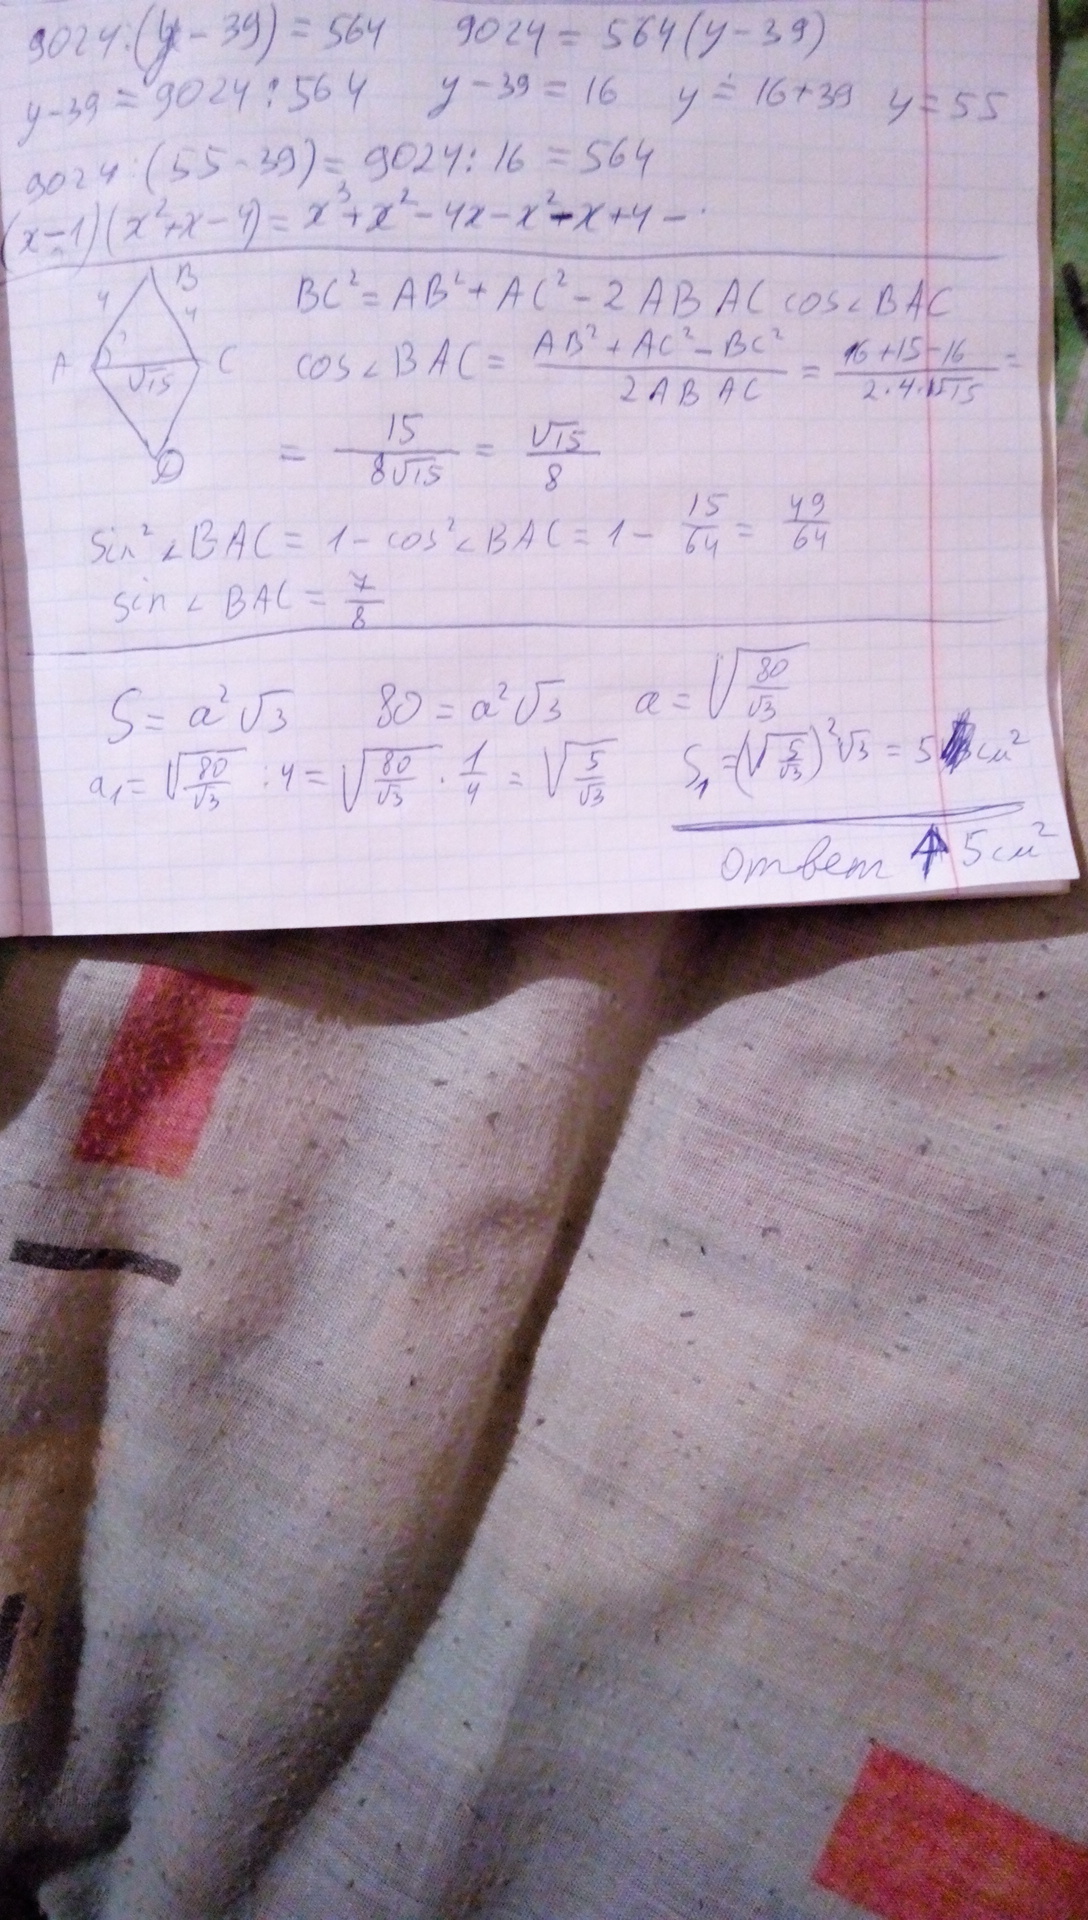 9024:(y-39)=564 9024=564(y-39)
y-39=9024:564 y-39=16 y=16+39 y=55
9024:(55-39)=9024:16=564
(x-1)(x²+x-4)=x³+x²-4x-x²-x+4-
B
4 4
A √15 C
BC²=AB²+AC²-2 AB AC cos∠BAC
cos∠BAC = (AB²+AC²-BC²)/(2 AB AC) = (16+15-16)/(2·4·√15) =
= 15/(8√15) = √15/8
sin²∠BAC=1-cos²∠BAC=1-15/64=49/64
sin∠BAC=7/8
S=a²√3 80=a²√3 a=√(80/√3)
a₁=√(80/√3):4=√(80/√3)·1/4=√(5/√3) S₁=(√(5/√3))²√3=5 см²
ответ 5см²